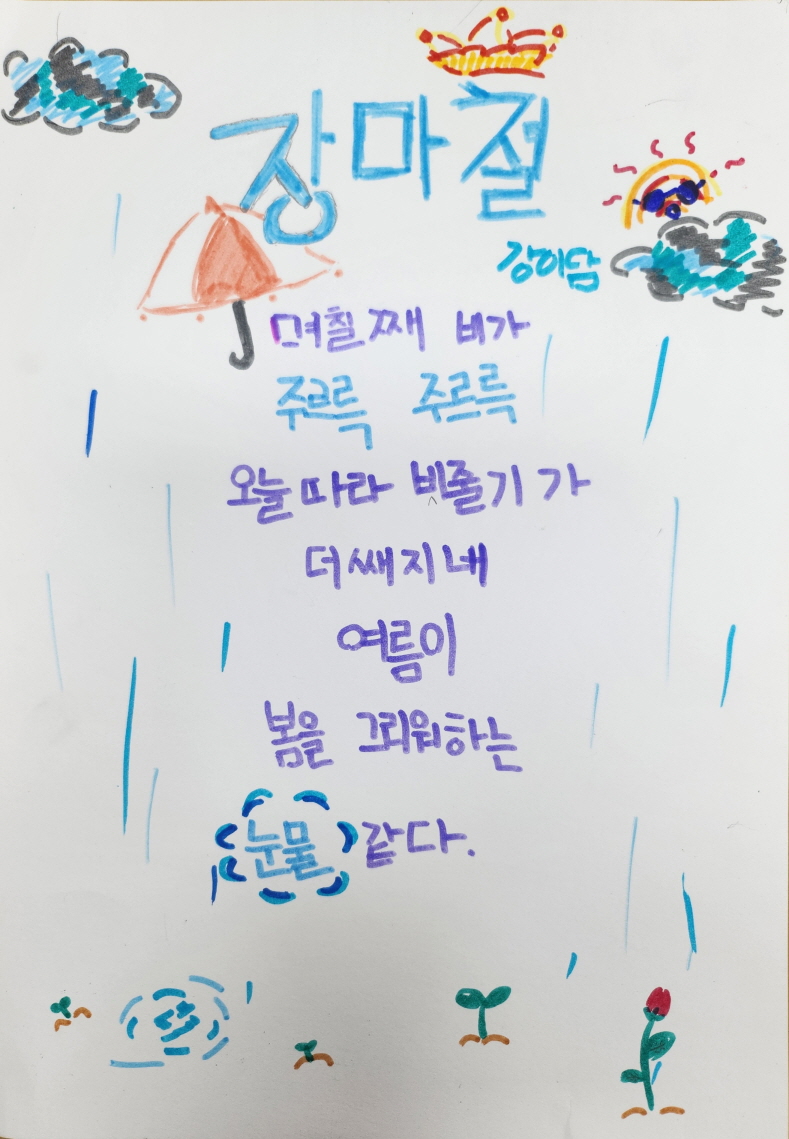 장마철
강이담
며칠째 비가
주르륵 주르륵
오늘따라 빗줄기가
더 쌔지네
여름이
봄을 그리워하는
눈물 같다.